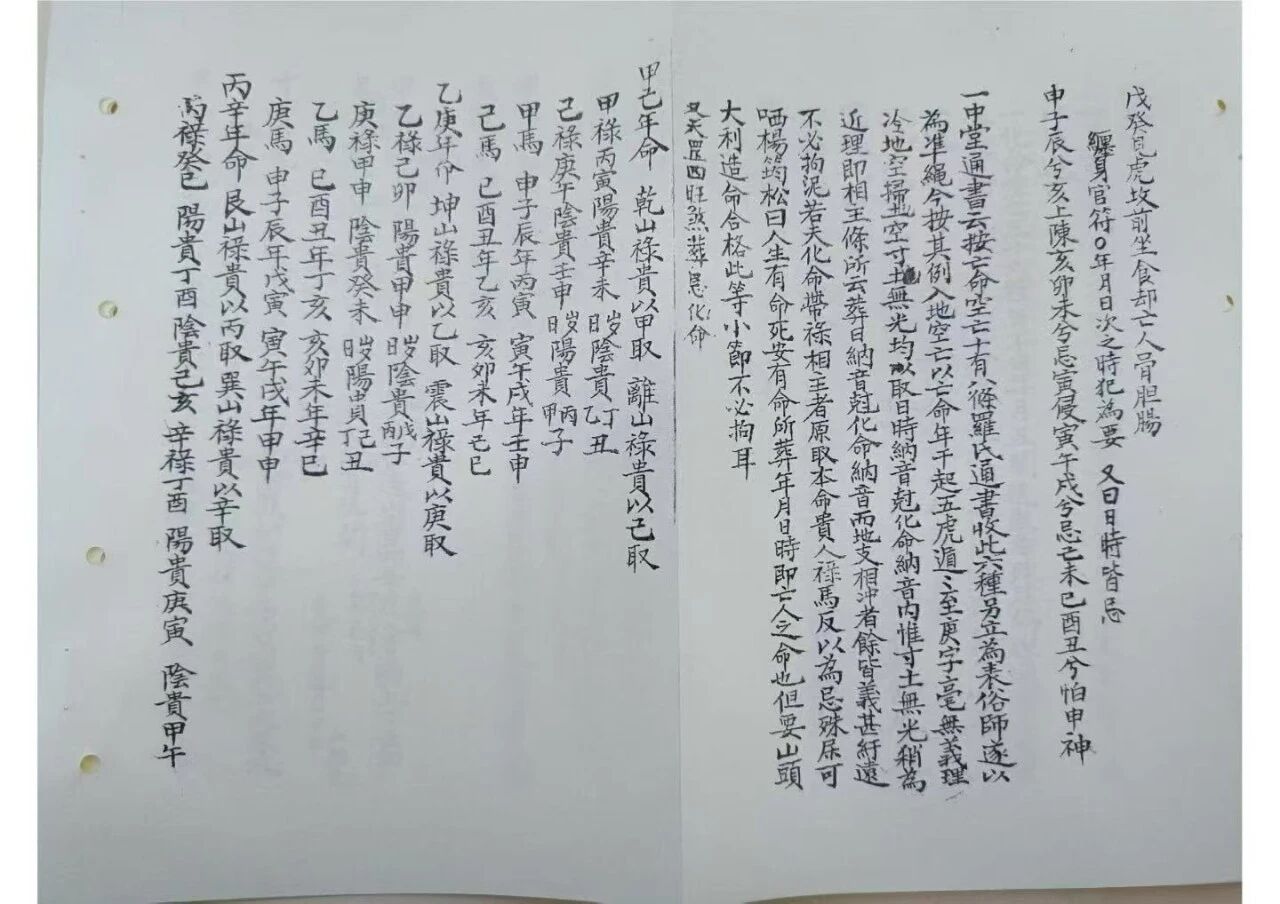 戊癸見虎坟前坐食却亡人骨胆腸
纏身官符〇年月日次之時犯為要 又曰日時皆忌
申子辰兮亥上陳亥卯未兮忌寅侵寅午戌兮忌己未巳酉丑兮怕申神
一中堂通書云按亡命空亡十有八條羅氏通書收此六種另立為表俗師遂以
為準繩今按其例入地空亡以亡命年干起五虎遁〻至庚字毫無義理
冷地空掃地空寸土無光均以取日時納音尅化命納音内惟寸土無光稍為
近理即相主條所云葬日納音尅化命納音而地支相冲者餘皆義甚紆遠
不必拘泥若天化命帶祿相主者原取本命貴人祿馬反以為忌殊屈可
哂楊筠松曰人生有命死安有命所葬年月日時即亡人之命也但要山頭
大利造命合格此等小節不必拘耳
又天罡四旺煞葬忌化命
甲己年命 乾山祿貴以甲取 離山祿貴以己取
甲祿丙寅陽貴辛未 日岁陰貴乙丁丑
己祿庚午陰貴壬申 日岁陽貴甲丙子
甲馬 申子辰年丙寅 寅午戌年壬申
己馬 巳酉丑年乙亥 亥卯未年己巳
乙庚年命 坤山祿貴以乙取 震山祿貴以庚取
乙祿己卯 陽貴甲申 日岁陰貴丙戊子
庚祿甲申 陰貴癸未 日岁陽貴丁己丑
乙馬 巳酉丑年丁亥 亥卯未年辛巳
庚馬 申子辰年戊寅 寅午戌年甲申
丙辛年命 艮山祿貴以丙取 巽山祿貴以辛取
丙祿癸巳 陽貴丁酉 陰貴己亥 辛祿丁酉 陽貴庚寅 陰貴甲午